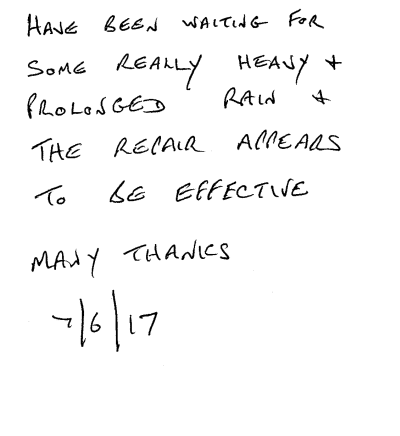 HAVE BEEN WAITING FOR
SOME REALLY HEAVY &
PROLONGED RAIN &
THE REPAIR APPEARS
TO BE EFFECTIVE
MANY THANKS
7/6/17